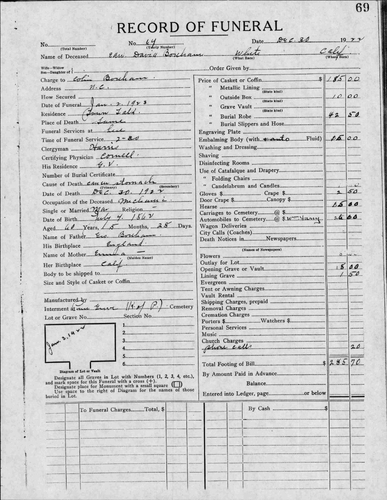 69
RECORD OF FUNERAL
No. 64 Date Dec 30 1922
(Total Number) (Yearly Number)
Name of Deceased David Boxham White Calif
(What Race) (Where Born)
Wife-Widow
Son-Daughter of
Order Given by
Charge to Boxham
Address N.C.
How Secured
Date of Funeral Jan. 2, 1923
Residence
Place of Death Same
Funeral Services at
Time of Funeral Service 2-30
Clergyman Harris
Certifying Physician Cornell
His Residence G.V.
Number of Burial Certificate
Cause of Death stomach
Date of Death Dec 30, 1922
Occupation of the Deceased Mechanic
Single or Married Mar Religion
Date of Birth July 4, 1862
Aged 60 Years, 5 Months, 25 Days
Name of Father Geo Boxham
His Birthplace England
Name of Mother Emma
(Maiden Name)
Her Birthplace Calif
Body to be shipped to
Size and Style of Casket or Coffin
Manufactured by
Interment (K of P) Cemetery
Lot or Grave No. Section No.
1.
2.
3.
4.
5.
6.
Diagram of Lot or Vault
Designate all Graves in Lot with Numbers (1, 2, 3, 4, etc.), and mark space for this Funeral with a cross (+). Designate place for Monument with a small square (□)
Use space to the right of Diagram for the names of those buried in Lot.
Price of Casket or Coffin $ 185 00
" Metallic Lining
(State Kind)
" Outside Box 10 00
(State Kind)
" Grave Vault
(State Kind)
" Burial Robe 42 50
(State Kind)
" Burial Slippers and Hose
Engraving Plate
Embalming Body (with Fluid) 15 00
Washing and Dressing
Shaving
Disinfecting Rooms
Use of Catafalque and Drapery
" Folding Chairs
" Candelabrum and Candles
Gloves $ Crape $ 2 50
Door Crape Canopy $
Hearse 15 00
Carriages to Cemetery @ $
Automobiles to Cemetery @ $
Wagon Deliveries
City Calls (Coaches)
Death Notices in Newspapers
(Names of Newspapers)
Flowers
Outlay for Lot
Opening Grave or Vault
Lining Grave 1 50
Evergreen
Tent or Awning Charges
Vault Rental
Shipping Charges, prepaid
Removal Charges
Cremation Charges
Porters $ Watchers $
Personal Services
Music
Church Charges
phone call 20
Total Footing of Bill $ 285 70
By Amount Paid in Advance
Balance
Entered into Ledger, page or below
To Funeral Charges, Total, $
By Cash $